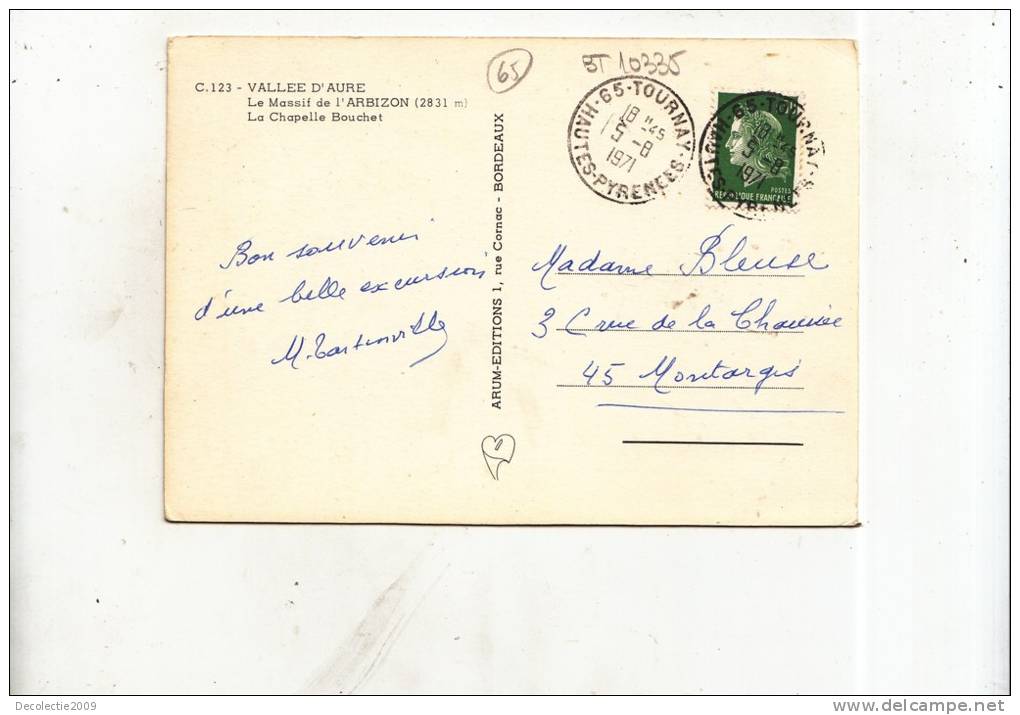 C.123 - VALLEE D'AURE
Le Massif de l'ARBIZON (2831 m)
La Chapelle Bouchet
65
BT 10335
HAUTES-PYRENEES - 65-TOURNAY
18 H45
5-8
1971
65-TOURNAY
18 H45
5-8
1971
POSTES
REPUBLIQUE FRANÇAISE
Bon souvenir
d'une belle excursion
M. Tartinville
ARUM-EDITIONS 1, rue Cornac - BORDEAUX
Madame Bleuse
3 C rue de la Chaussée
45 Montargis
Decolectie2009
www.delcampe.net